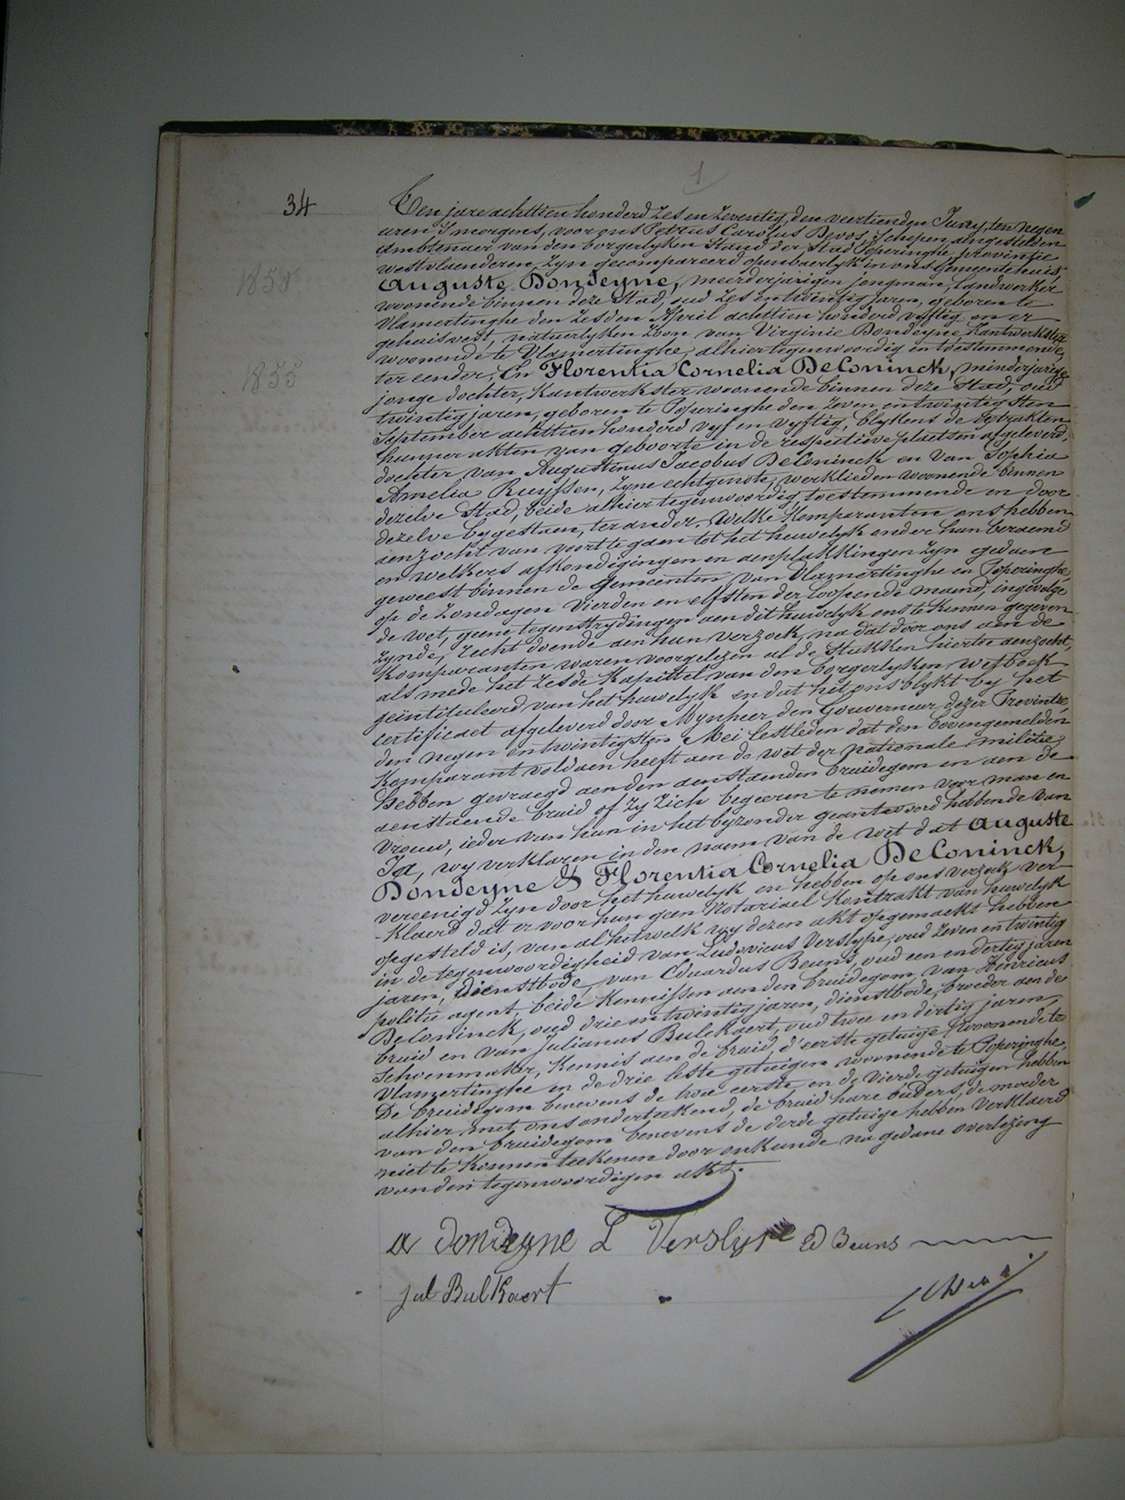 1
34
Ten jare achttien honderd zes en zeventig, den veertienden Juny, ten negen
uren 's morgens, voor ons Petrus Carolus Devos, schepen aengestelden
ambtenaer van den borgerlyken Stand der Stad Poperinghe, provintie
westvlaenderen, zyn gecompareerd openbaerlyk in ons Gemeentehuis,
Auguste Dondeyne, meerderjarigen jongman, landwerker
woonende binnen deze Stad, oud zes en twintig jaren, geboren te
Vlamertinghe den zesden April achttien honderd vyftig en er
gehuisvest, natuerlyken zoon van Virginie Dondeyne, kantwerkster
woonende te Vlamertinghe, alhier tegenwoordig en toestemmende,
1850
ter eender, En Florentia Cornelia DeConinck, minderjarige
1855
jonge dochter, Kantwerkster woonende binnen deze Stad, oud
twintig jaren, geboren te Poperinghe den zeven en twintigsten
September achttien honderd vyf en vyftig, blykens de extrakten
hunner akten van geboorte in de respectieve plaetsen afgeleverd,
dochter van Augustinus Jacobus DeConinck en van Sophia
Amelia Ruyssen, zyne echtgenote, werklieden woonende binnen
dezelve Stad, beide alhier tegenwoordig toestemmende en door
dezelve bygestaen, ter ander. Welke Komparanten ons hebben
aenzocht van voort te gaen tot het huwelyk onder hun beraemd
en welkers afkondigingen en aenplakkingen zyn gedaen
geweest binnen de Gemeenten van Vlamertinghe en Poperinghe,
op de zondagen vierden en elfsten der loopende maend, ingevolge
de wet, geene tegenstrydingen aen dit huwelyk ons te kennen gegeven
zynde, recht doende aen hun verzoek, na dat door ons aen de
Komparanten waren voorgelezen al de Stukken hiertoe aenzocht,
als mede het zesde Kapittel van den borgerlyken wetboek
geïntituleerd van het huwelyk en dat het ons blykt by het
certificaet afgeleverd door Mynheer den Gouverneur dezer Provintie,
den negen en twintigsten Mei lestleden dat den bovengemelden
Komparant voldaen heeft aen de wet der nationale militie,
hebben gevraegd aen den aenstaenden bruidegom en aen de
aenstaende bruid of zy zich begeeren te nemen voor man en
vrouw, ieder van hun in het byzonder geantwoord hebbende van
Ja, wy verklaren in den naem van de wet dat Auguste
Dondeyne & Florentia Cornelia DeConinck,
vereenigd zyn door het huwelyk en hebben op ons verzoek ver-
-klaerd dat er voor hun geen Notariael Kontrakt van huwelyk
opgesteld is, van al hetwelk wy dezen akt opgemaekt hebben
in de tegenwoordigheid van Ludovicus Verslype, oud zeven en twintig
jaren, dienstbode, van Eduardus Beuns, oud een en dertig jaren
politie agent, beide Kennissen aen den bruidegom, van Henricus
DeConinck, oud drie en twintig jaren, dienstbode, broeder aen de
bruid en van Julianus Bulckaert, oud twee en dertig jaren,
Schoenmaker, Kennis aen de bruid, d'eerste getuige, woonende te
Vlamertinghe en de drie leste getuigen woonende te Poperinghe,
De bruidegom benevens de twee eerste en de vierde getuigen hebben
alhier met ons onderteekend, de bruid hare ouders, de moeder
van den bruidegom benevens de derde getuige hebben verklaerd
niet te Konnen teekenen door onkunde na gedane overlezing
van den tegenwoordigen akt.
a Dondeyne L Verslype Ed Beuns
Jul Bulkaert